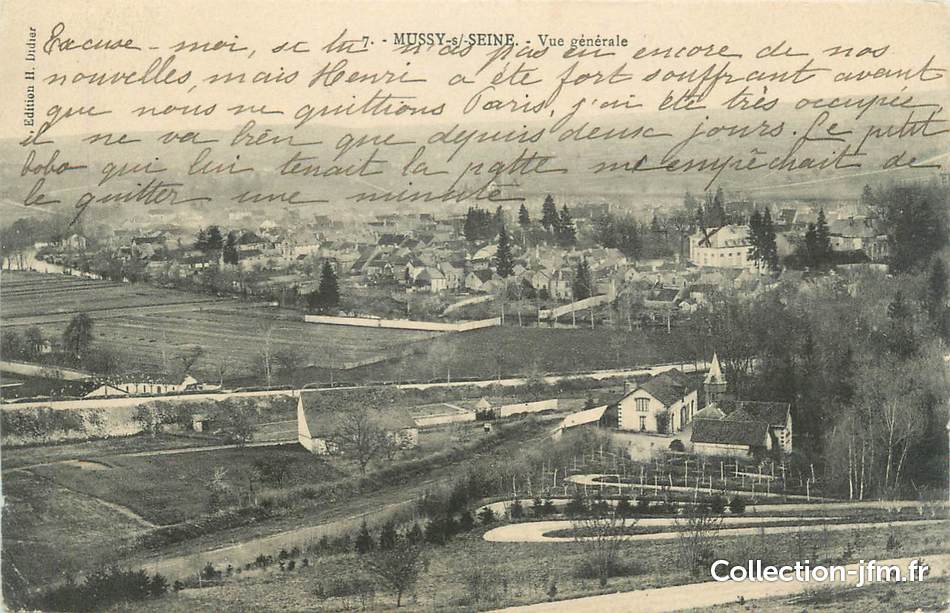 Edition H. Didier
7. - MUSSY-s/-SEINE. - Vue générale
Excuse-moi, si tu n'as pas eu encore de nos
nouvelles, mais Henri a été fort souffrant avant
que nous ne quittions Paris, j'ai été très occupée,
il ne va bien que depuis deux jours. Le petit
bobo qui lui tenait la patte m'empêchait de
le quitter une minute
Collection-jfm.fr